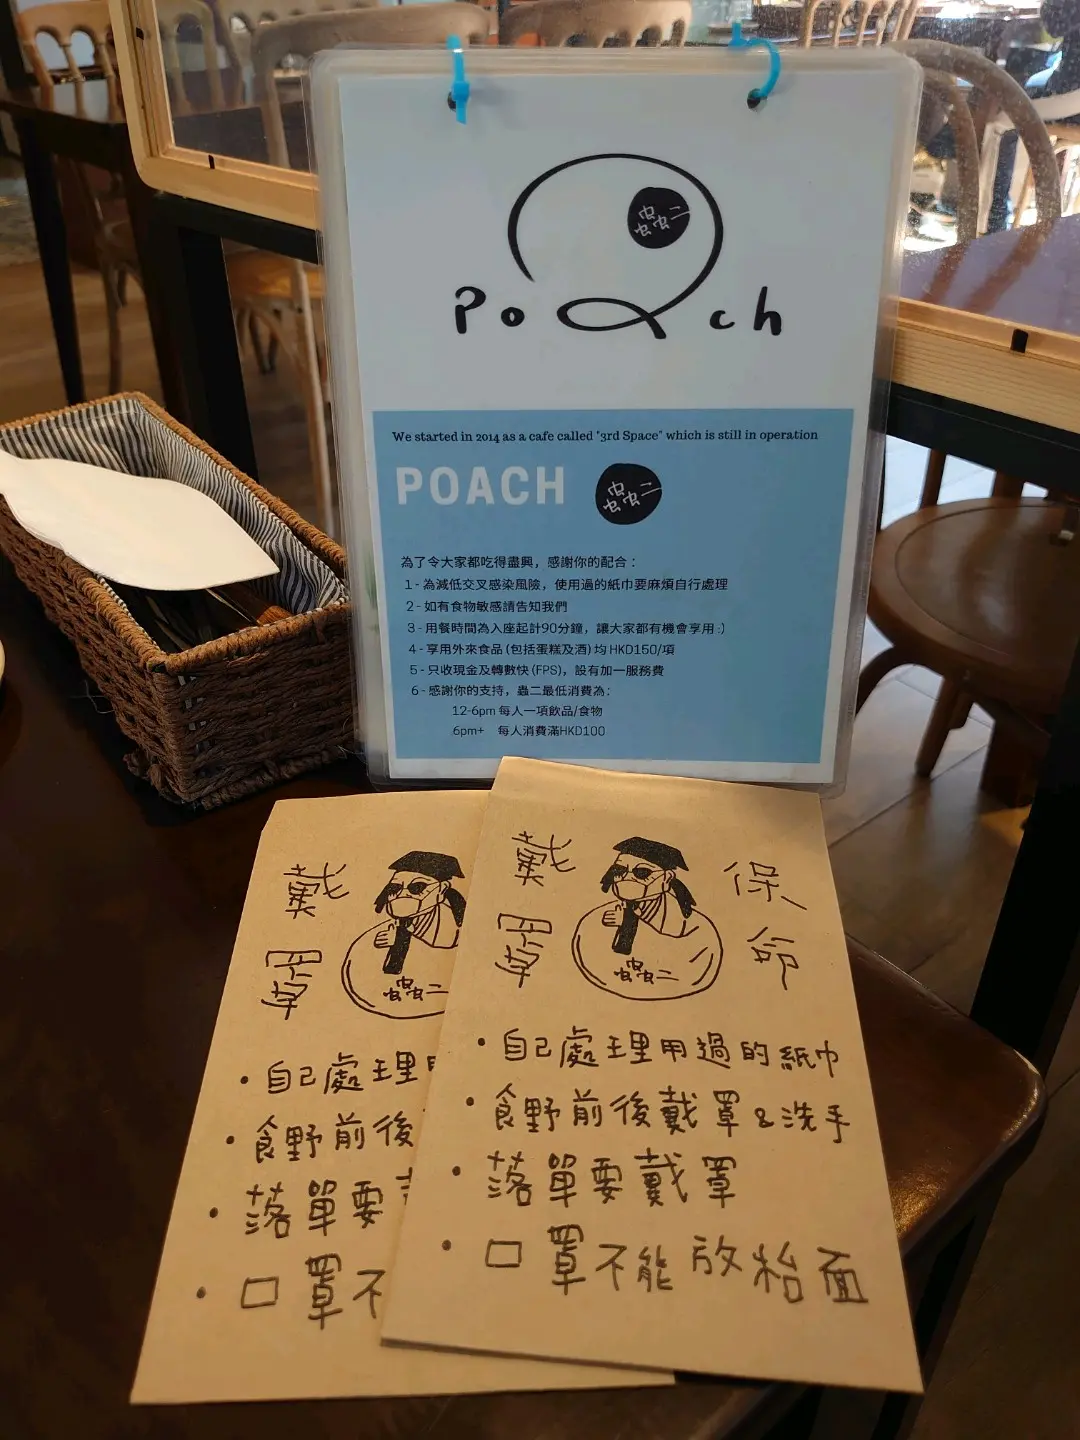 蟲二
Poach
We started in 2014 as a cafe called "3rd Space" which is still in operation
POACH
蟲二
為了令大家都吃得盡興，感謝你的配合：
1 - 為減低交叉感染風險，使用過的紙巾要麻煩自行處理
2 - 如有食物敏感請告知我們
3 - 用餐時間為入座起計90分鐘，讓大家都有機會享用 :)
4 - 享用外來食品 (包括蛋糕及酒) 均 HKD150/項
5 - 只收現金及轉數快 (FPS)，設有加一服務費
6 - 感謝你的支持，蟲二最低消費為：
12-6pm 每人一項飲品/食物
6pm+ 每人消費滿HKD100
戴罩
保命
蟲二
• 自己處理用過的紙巾
• 食野前後戴罩 & 洗手
• 落單要戴罩
• 口罩不能放枱面
戴罩
蟲二
• 自己處理
• 食野前後
• 落單要
• 口罩不